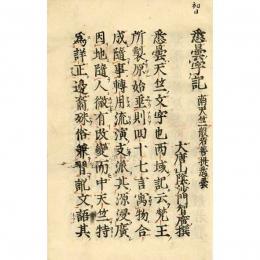 悉曇字記 南天竺般若菩提悉曇
大唐山陰沙門智廣撰
悉曇天竺文字也西域記云梵王
所製原始垂則四十七言寓物合
成隨事轉用流演支派其源浸廣
因地隨人微有改變而中天竺特
為詳正邊裔殊俗兼習訛文語其